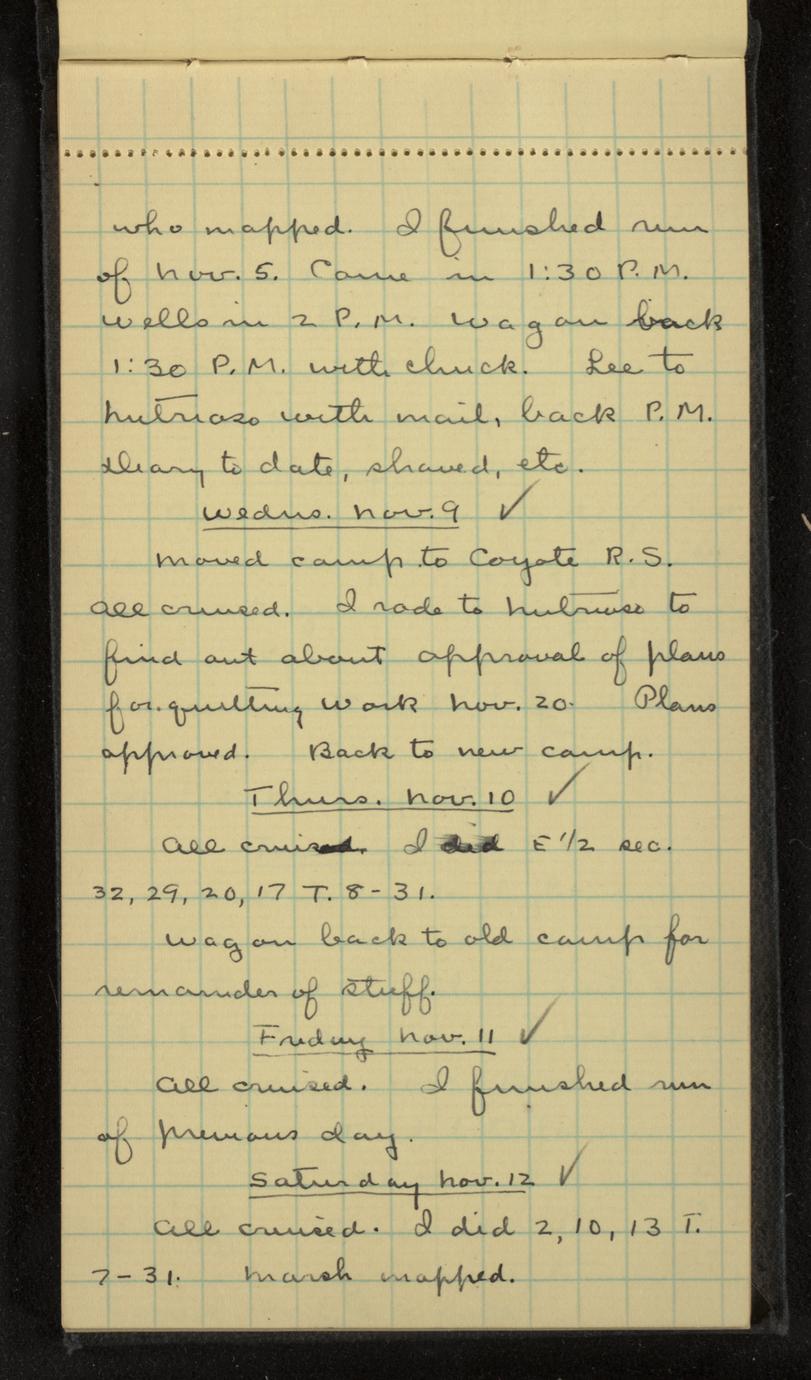 who mapped. I finished run
of Nov. 5. Came in 1:30 P.M.
Wells in 2 P.M. Wagon back
1:30 P.M. with chuck. Lee to
Nutrioso with mail, back P.M.
Diary to date, shaved, etc.
Wednes. Nov. 9 ✓
Moved camp to Coyote R.S.
All cruised. I rode to Nutrioso to
find out about approval of plans
for quitting work Nov. 20. Plans
approved. Back to new camp.
Thurs. Nov. 10 ✓
All cruised. I did E 1/2 sec.
32, 29, 20, 17 T. 8-31.
Wagon back to old camp for
remainder of stuff.
Friday Nov. 11 ✓
All cruised. I finished run
of previous day.
Saturday Nov. 12 ✓
All cruised. I did 2, 10, 13 T.
7-31. Marsh mapped.